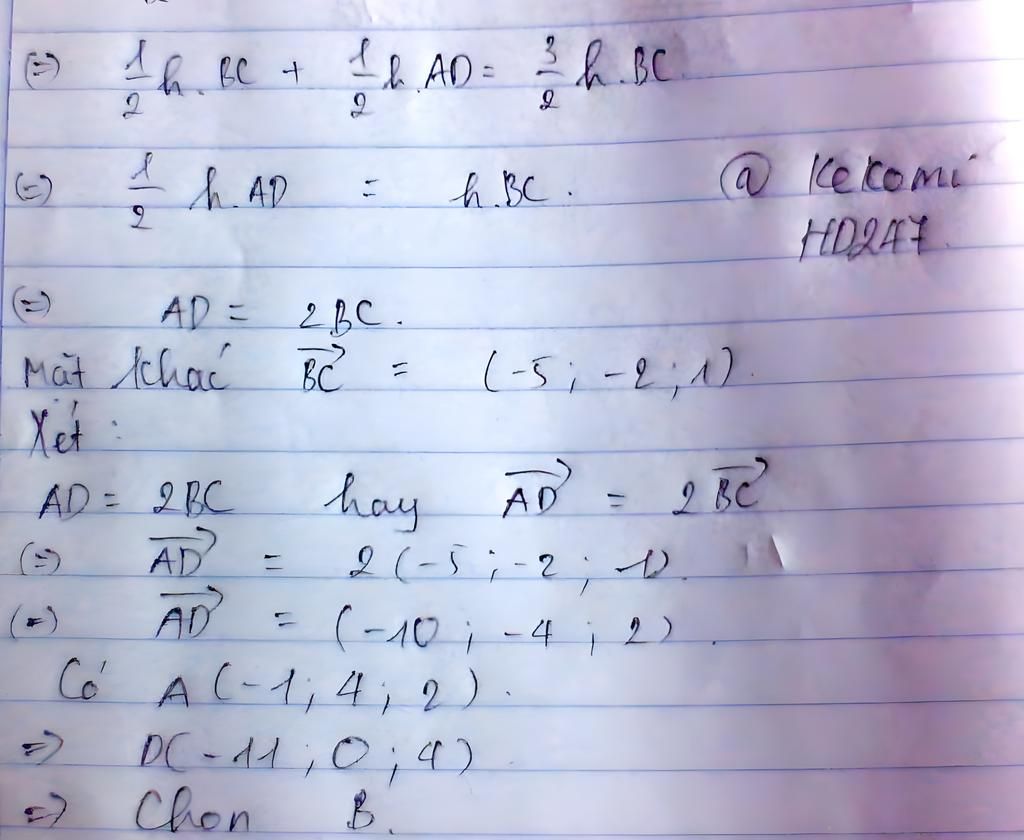 (=) 1/2 h. BC + 1/2 h. AD = 3/2 h. BC
(=) 1/2 h. AD = h. BC. @ Kekomi
HD247
(=) AD = 2BC.
Mặt khác BC→ = (-5; -2; 1).
Xét:
AD = 2BC hay AD→ = 2BC→
(=) AD→ = 2(-5; -2; 1).
(=) AD→ = (-10; -4; 2).
Có A(-1; 4; 2).
=> D(-11; 0; 4)
=> Chọn B.